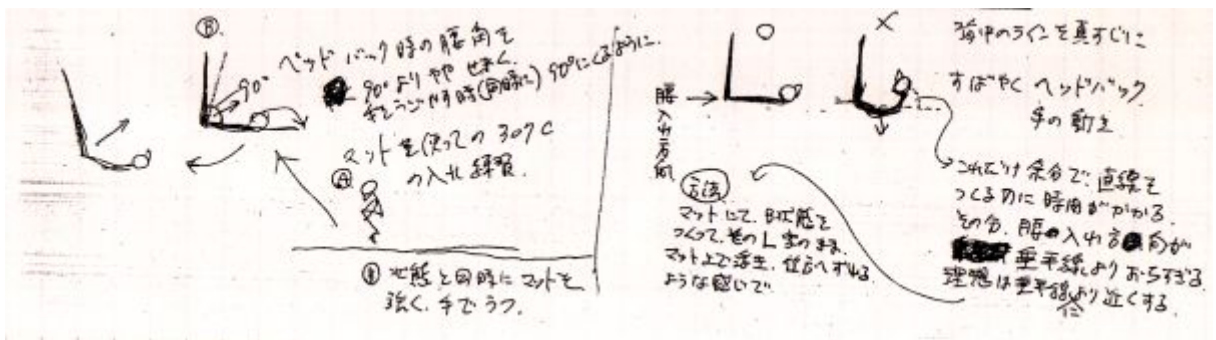 Ⓑ
ヘッドバック時の腰角を
90°よりややせまく.
手をうごかす時(同時に)90°にくるように.
90°
マットを使っての 307C
の入れ練習.
Ⓐ
Ⓑ 状態と同時にマットを
強く.手でうつ.
○
×
背中のラインを真すじに
すばやく ヘッドバック
手の動き
腰入れ方向
方法
マットにて.B状態を
つくって.そのL字のまま.
マット上で浮き.後方へずれる
ような感じで.
これだけ余分で.直線を
つくるのに時間がかかる.
その分.腰の入れ方向が
垂平線よりおちすぎる
理想は垂平線に近くする.
より